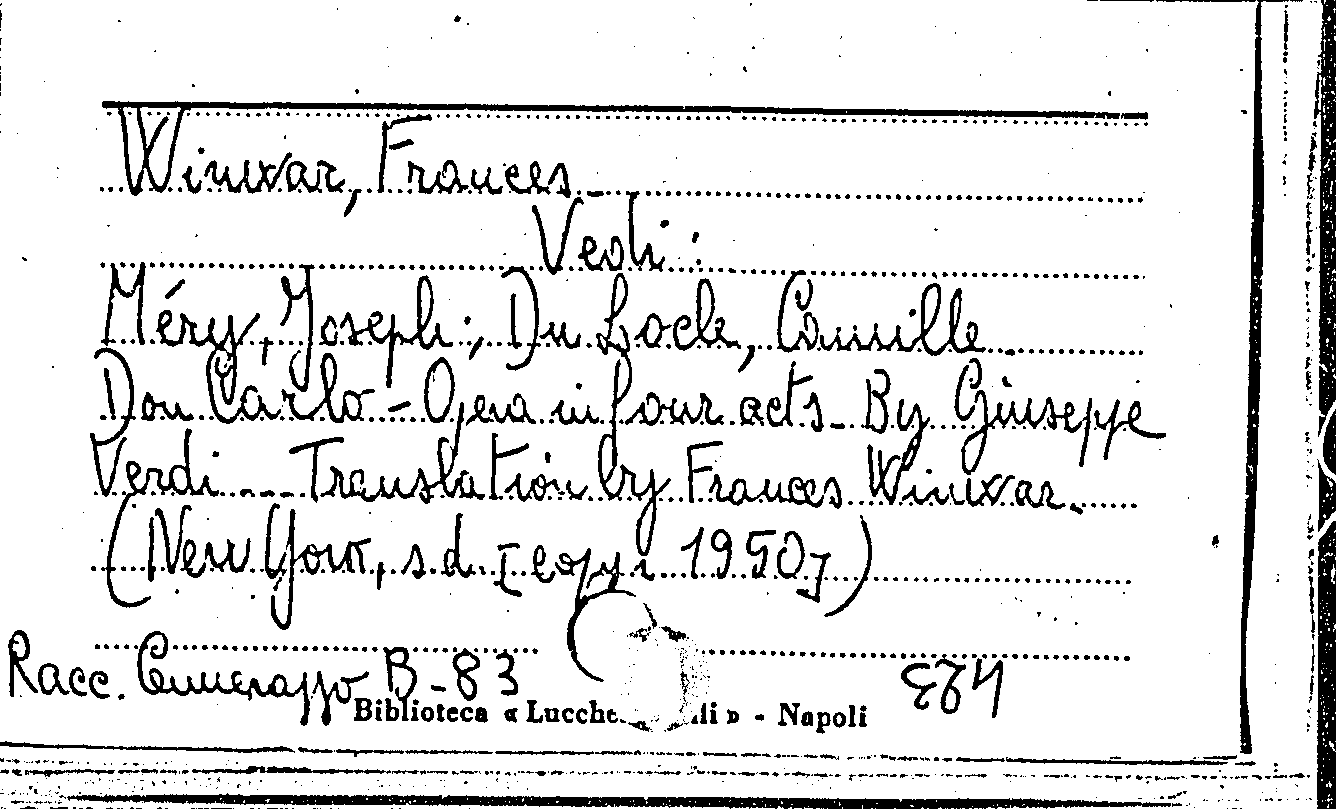 Winwar, Frances_
Vedi:
Méry, Joseph; Du Locle, Camille_
Don Carlo - Opera in four acts_ By Giuseppe
Verdi_ _ _ Translation by Frances Winwar_
(New York, s. d. [copy: 1950])
Racc. Cummerazzo B-83
Biblioteca « Lucche li » - Napoli